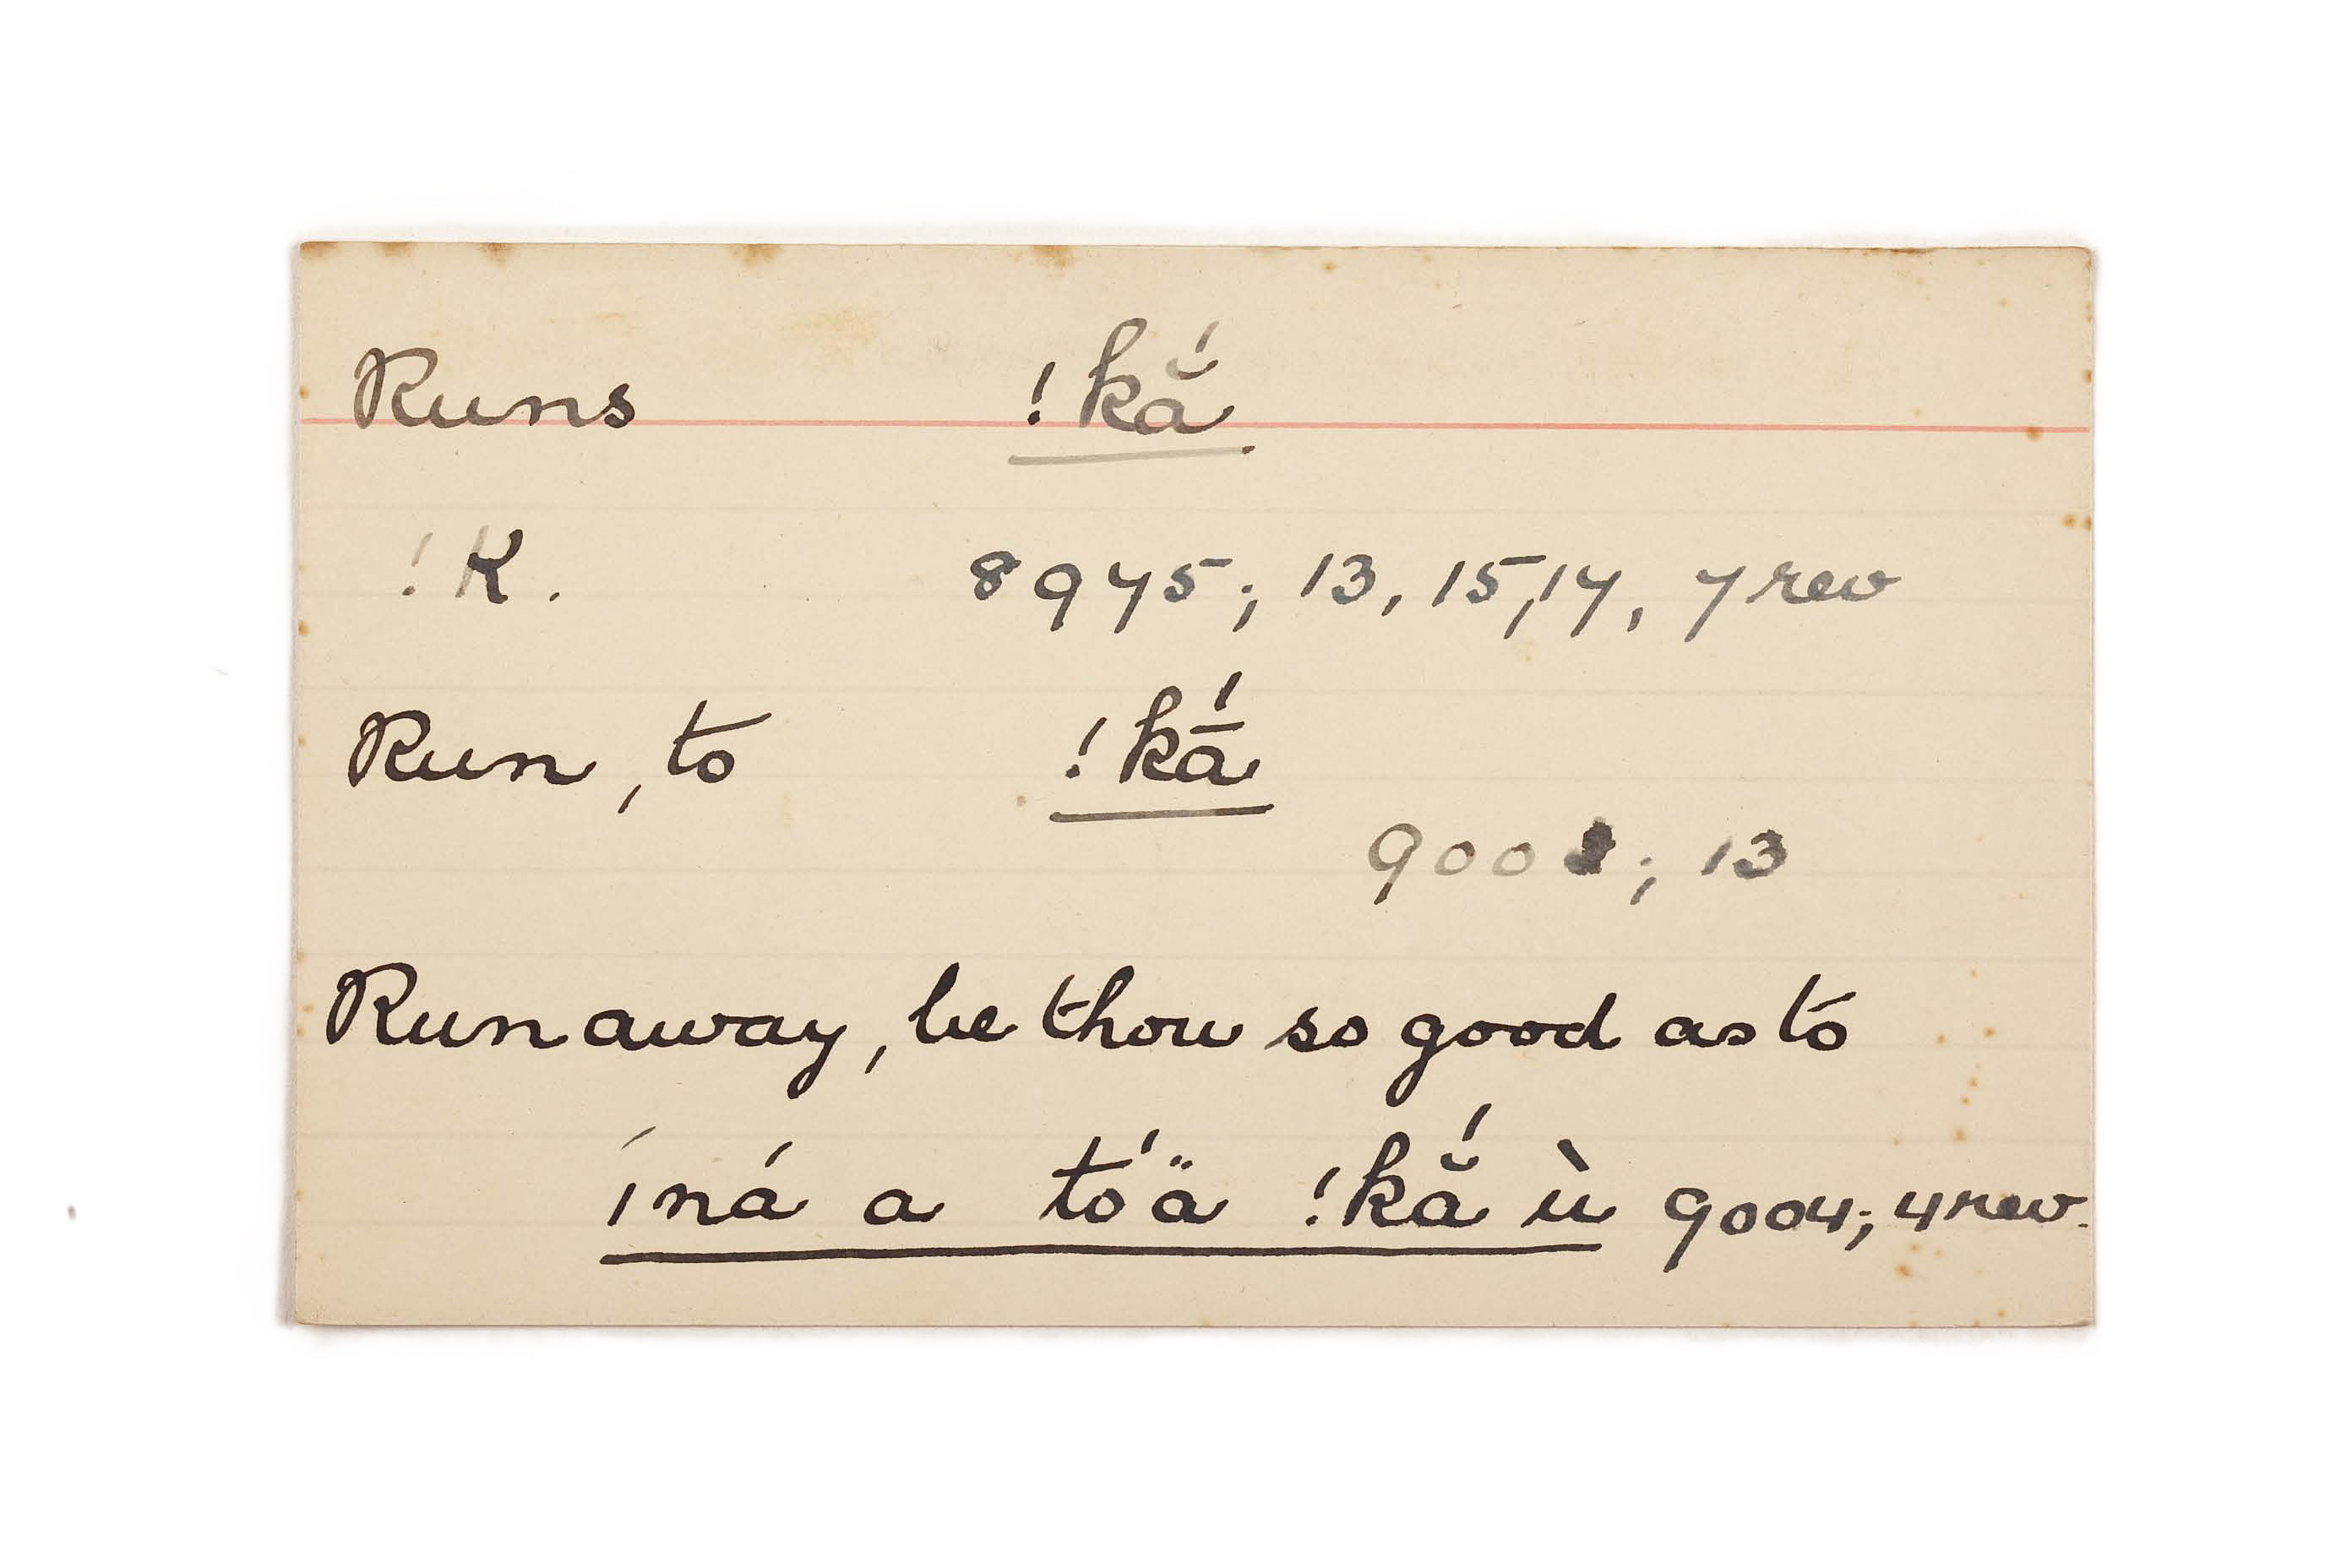 Runs !kắ
!K. 8975; 13, 15, 17, 7 rev
Run, to !kā́
; 13
Run away, be thou so good as to
íná a tó'ä !kắ ù 9004; 4 rev.